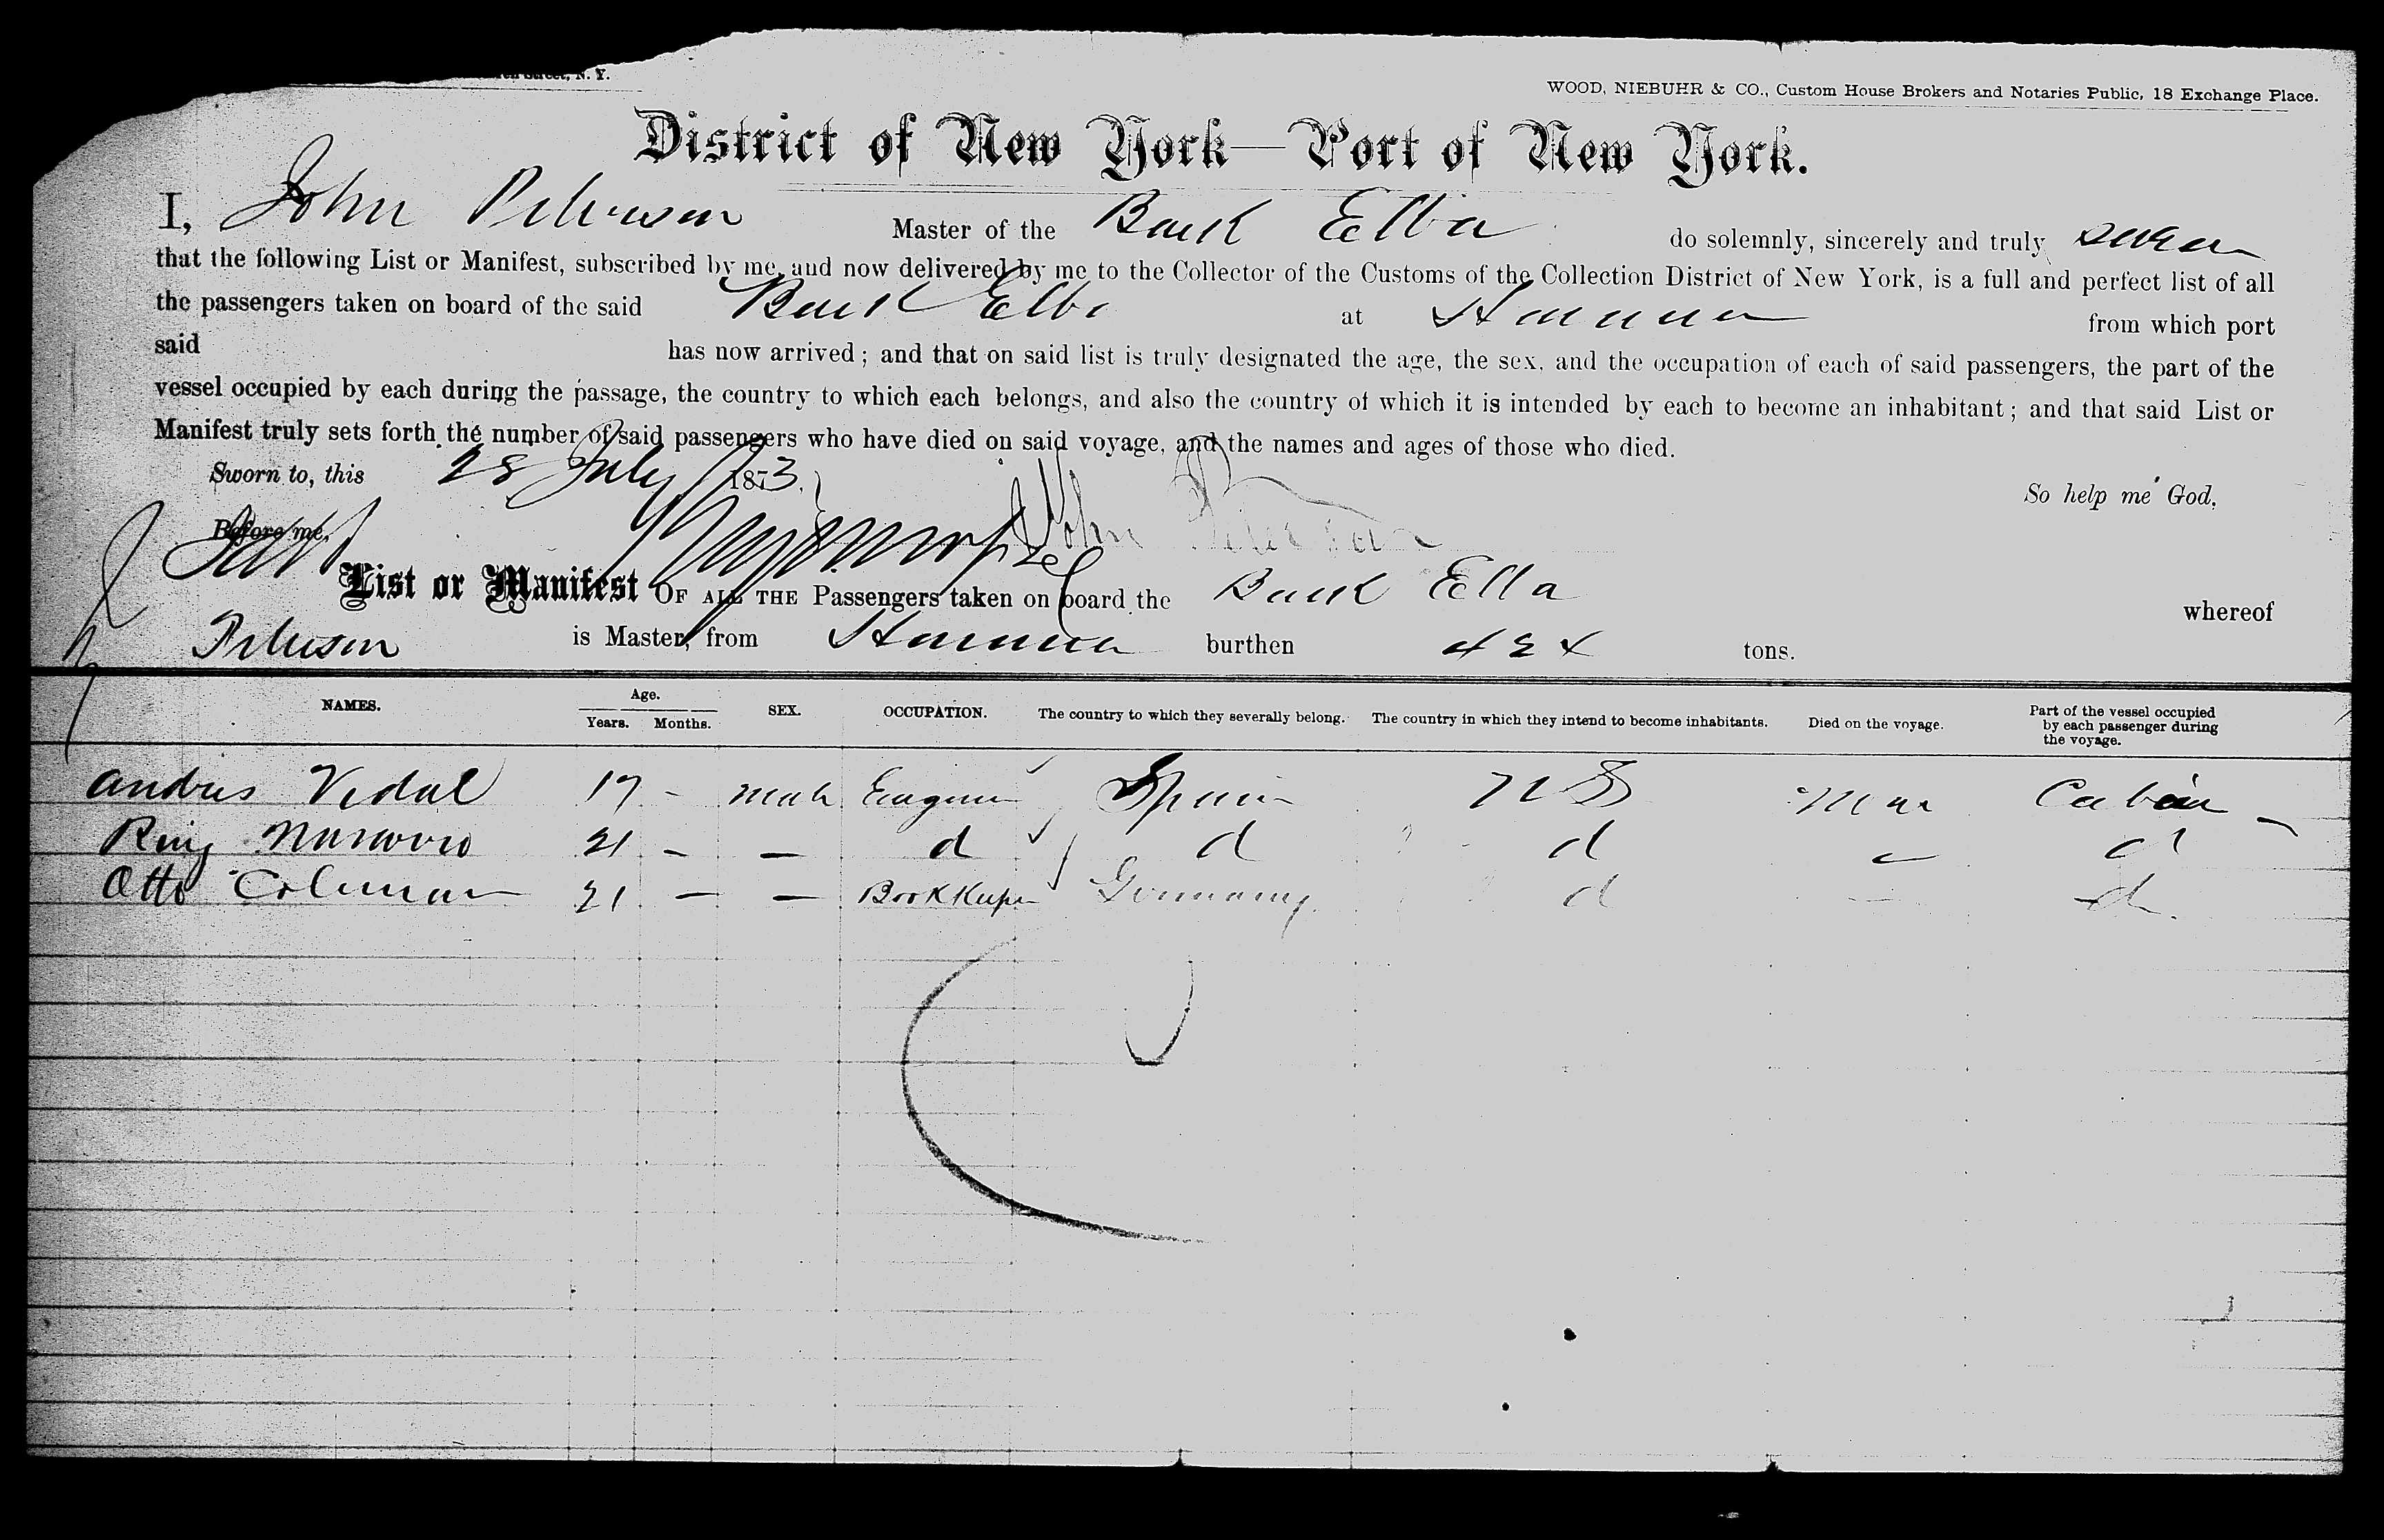 Street, N. Y.
WOOD, NIEBUHR & CO., Custom House Brokers and Notaries Public, 18 Exchange Place.
District of New York—Port of New York.
I, John Peterson Master of the Bark Elba do solemnly, sincerely and truly swear
that the following List or Manifest, subscribed by me, and now delivered by me to the Collector of the Customs of the Collection District of New York, is a full and perfect list of all
the passengers taken on board of the said Bark Elba at Havana from which port
said has now arrived; and that on said list is truly designated the age, the sex, and the occupation of each of said passengers, the part of the
vessel occupied by each during the passage, the country to which each belongs, and also the country of which it is intended by each to become an inhabitant; and that said List or
Manifest truly sets forth the number of said passengers who have died on said voyage, and the names and ages of those who died.
Sworn to, this 28 July 1873.
So help me God,
John Peterson
Before me,
List or Manifest OF ALL THE Passengers taken on board the Bark Elba whereof
Peterson is Master, from Havana burthen 424 tons.
NAMES. Age. Years. Months. SEX. OCCUPATION. The country to which they severally belong. The country in which they intend to become inhabitants. Died on the voyage. Part of the vessel occupied by each passenger during the voyage.
Andres Vidal 17 - Male Engineer Spain US Cabin
21 - — d d d d
Otto Coleman 21 — — BookKeeper Germany d d